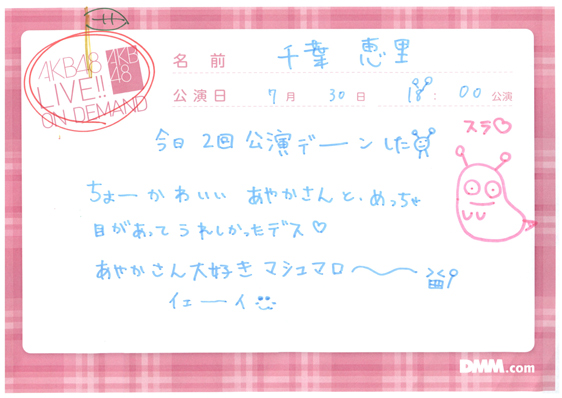 AKB48
LIVE!!
ON DEMAND
AKB
48
名前 千葉恵里
公演日 7月 30日 18:00公演
今日2回公演デーンした
スラ♡
ちょーかわいい あやかさんと、めっちゃ
目があってうれしかったデス♡
あやかさん大好きマシュマロ〜
イェーイ
DMM.com